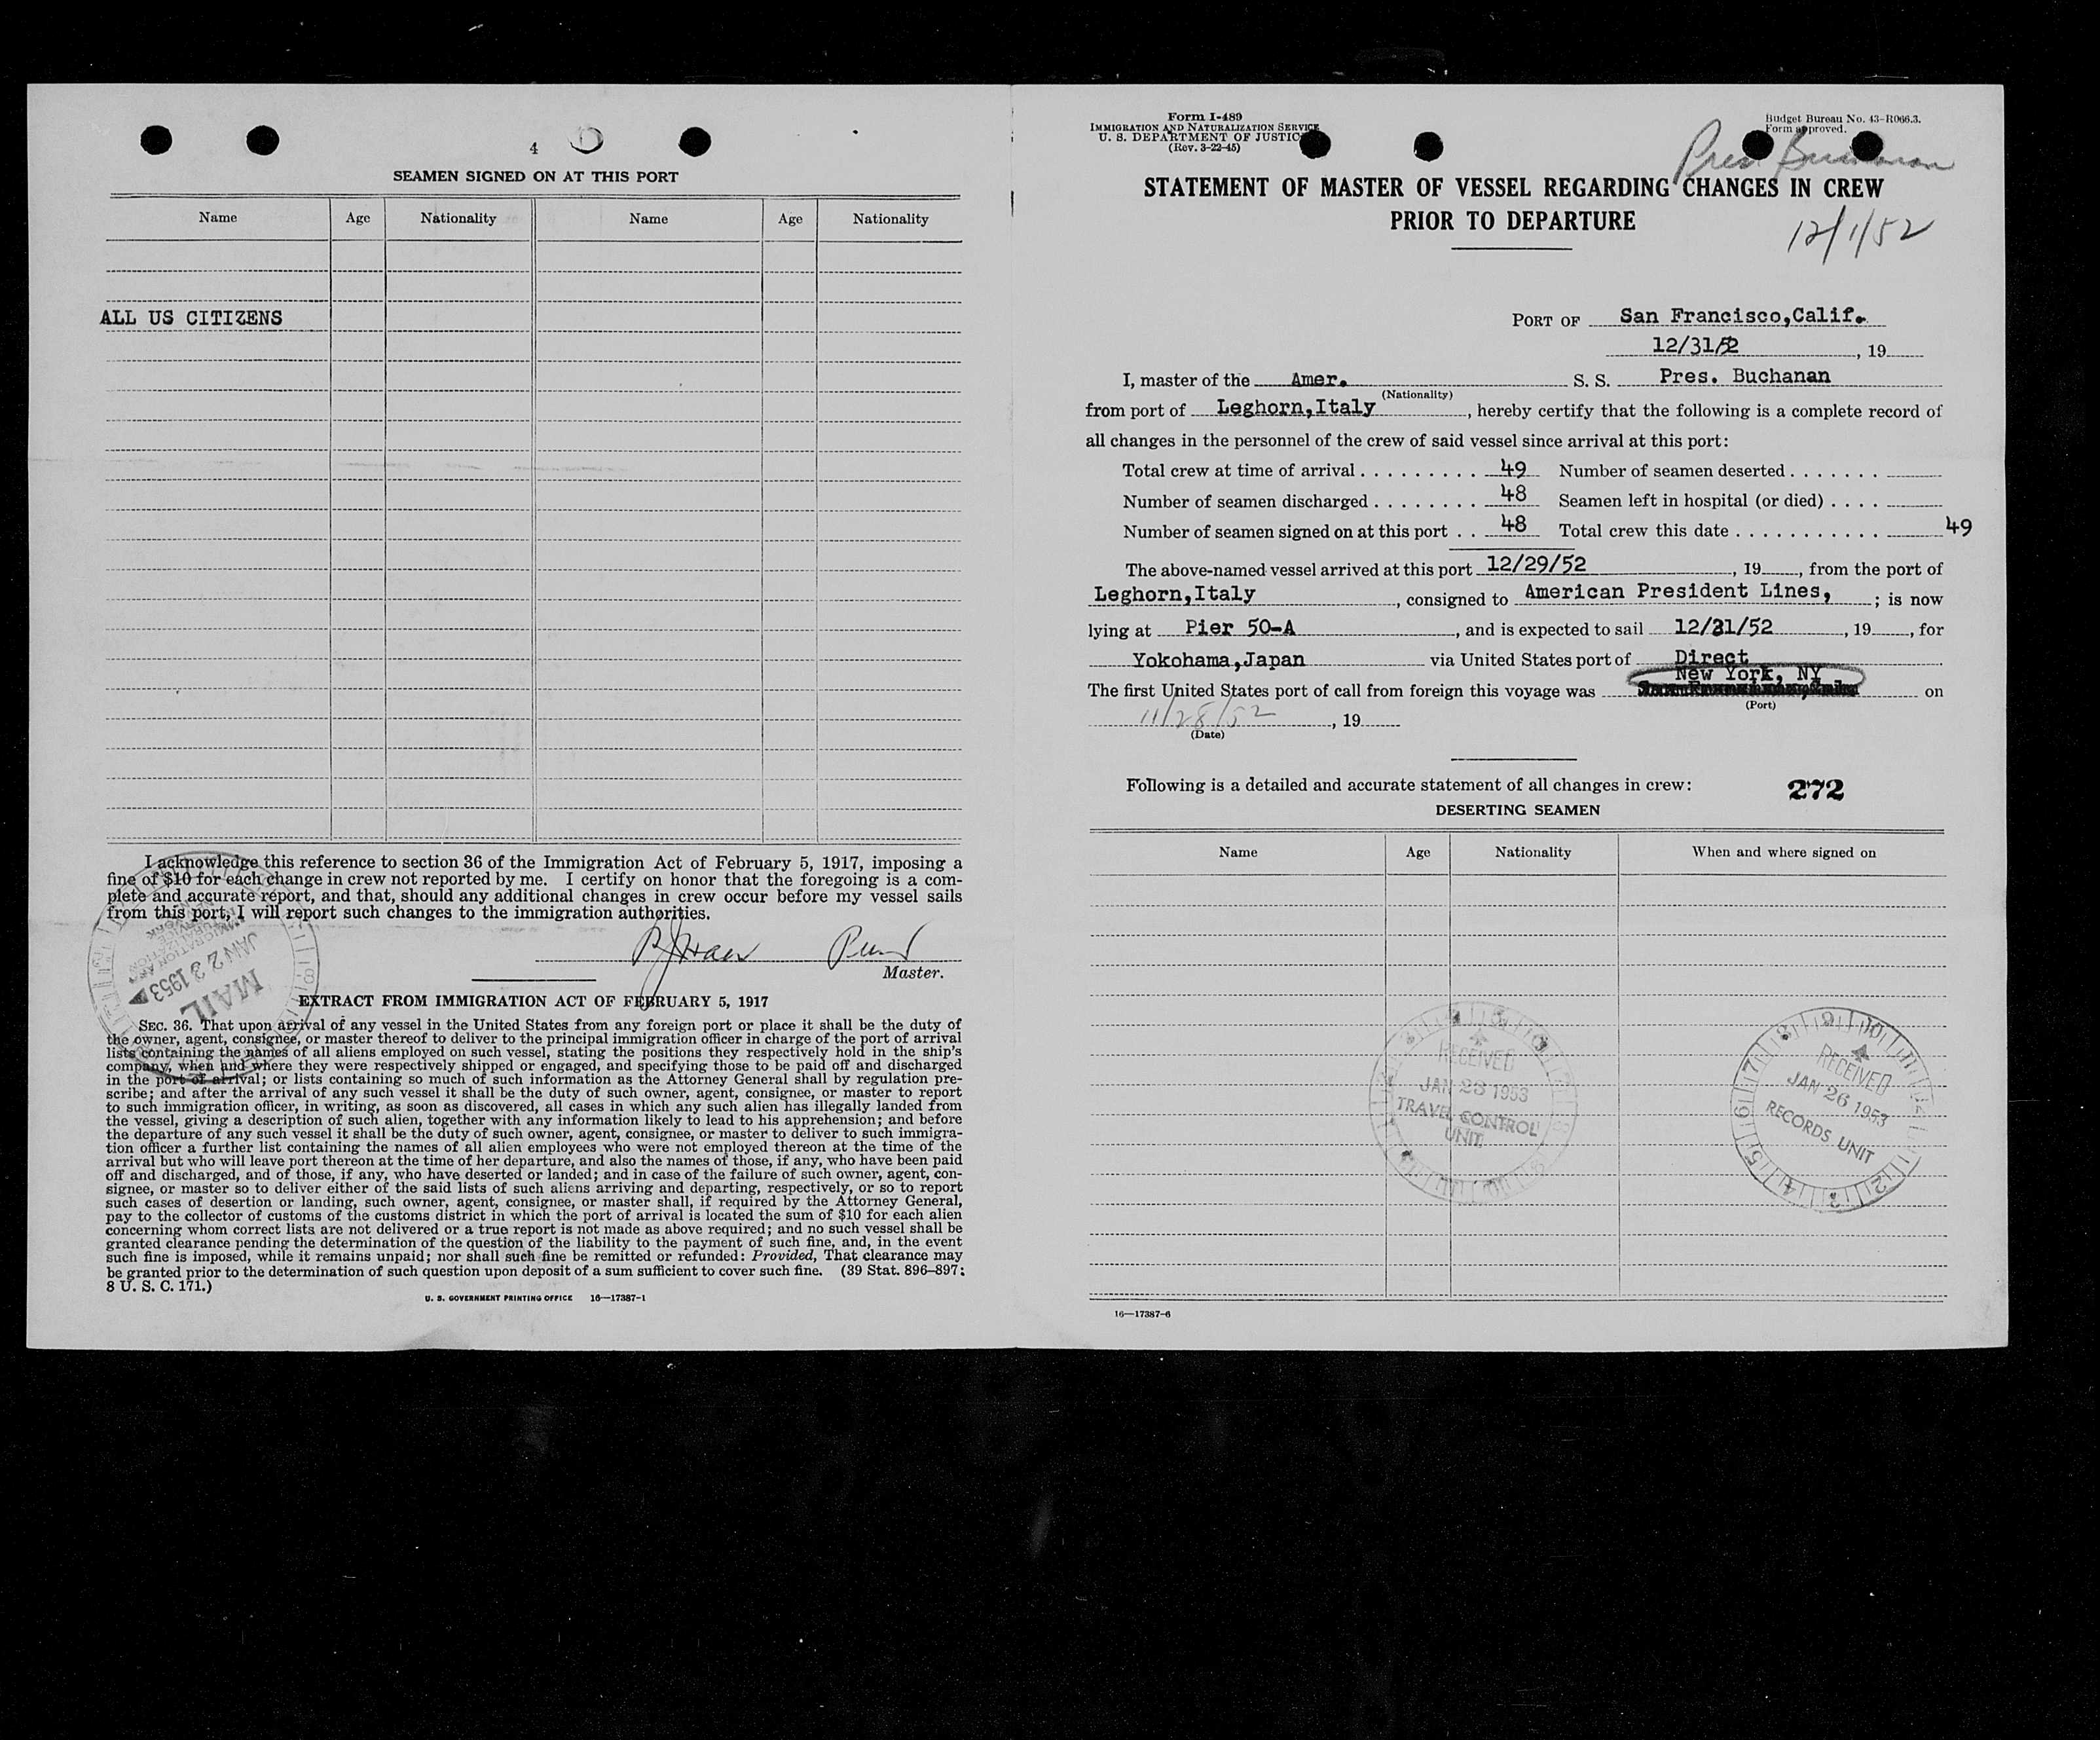 4
SEAMEN SIGNED ON AT THIS PORT
Name Age Nationality Name Age Nationality
ALL US CITIZENS
I acknowledge this reference to section 36 of the Immigration Act of February 5, 1917, imposing a
fine of $10 for each change in crew not reported by me. I certify on honor that the foregoing is a com-
plete and accurate report, and that, should any additional changes in crew occur before my vessel sails
from this port, I will report such changes to the immigration authorities.
Master.
JAN 23 1953
MAIL
EXTRACT FROM IMMIGRATION ACT OF FEBRUARY 5, 1917
SEC. 36. That upon arrival of any vessel in the United States from any foreign port or place it shall be the duty of
the owner, agent, consignee, or master thereof to deliver to the principal immigration officer in charge of the port of arrival
lists containing the names of all aliens employed on such vessel, stating the positions they respectively hold in the ship's
company, when and where they were respectively shipped or engaged, and specifying those to be paid off and discharged
in the port of arrival; or lists containing so much of such information as the Attorney General shall by regulation pre-
scribe; and after the arrival of any such vessel it shall be the duty of such owner, agent, consignee, or master to report
to such immigration officer, in writing, as soon as discovered, all cases in which any such alien has illegally landed from
the vessel, giving a description of such alien, together with any information likely to lead to his apprehension; and before
the departure of any such vessel it shall be the duty of such owner, agent, consignee, or master to deliver to such immigra-
tion officer a further list containing the names of all alien employees who were not employed thereon at the time of the
arrival but who will leave port thereon at the time of her departure, and also the names of those, if any, who have been paid
off and discharged, and of those, if any, who have deserted or landed; and in case of the failure of such owner, agent, con-
signee, or master so to deliver either of the said lists of such aliens arriving and departing, respectively, or so to report
such cases of desertion or landing, such owner, agent, consignee, or master shall, if required by the Attorney General,
pay to the collector of customs of the customs district in which the port of arrival is located the sum of $10 for each alien
concerning whom correct lists are not delivered or a true report is not made as above required; and no such vessel shall be
granted clearance pending the determination of the question of the liability to the payment of such fine, and, in the event
such fine is imposed, while it remains unpaid; nor shall such fine be remitted or refunded: Provided, That clearance may
be granted prior to the determination of such question upon deposit of a sum sufficient to cover such fine. (39 Stat. 896–897;
8 U. S. C. 171.)
U. S. GOVERNMENT PRINTING OFFICE 16—17387-1
Form I-489
IMMIGRATION AND NATURALIZATION SERVICE
U. S. DEPARTMENT OF JUSTIC
(Rev. 3-22-45)
Budget Bureau No. 43-R066.3.
Form approved.
Pres. Buchanan
STATEMENT OF MASTER OF VESSEL REGARDING CHANGES IN CREW
PRIOR TO DEPARTURE
12/1/52
PORT OF San Francisco,Calif.
12/31/52, 19
I, master of the Amer. S. S. Pres. Buchanan
(Nationality)
from port of Leghorn,Italy, hereby certify that the following is a complete record of
all changes in the personnel of the crew of said vessel since arrival at this port:
Total crew at time of arrival 49 Number of seamen deserted
Number of seamen discharged 48 Seamen left in hospital (or died)
Number of seamen signed on at this port 48 Total crew this date 49
The above-named vessel arrived at this port 12/29/52, 19, from the port of
Leghorn,Italy, consigned to American President Lines,; is now
lying at Pier 50-A, and is expected to sail 12/31/52, 19, for
Yokohama,Japan via United States port of Direct
New York, NY
The first United States port of call from foreign this voyage was on
(Port)
11/28/52, 19
(Date)
Following is a detailed and accurate statement of all changes in crew: 272
DESERTING SEAMEN
Name Age Nationality When and where signed on
RECEIVED
JAN 23 1953
TRAVEL CONTROL
UNIT
RECEIVED
JAN 26 1953
RECORDS UNIT
16—17387-6